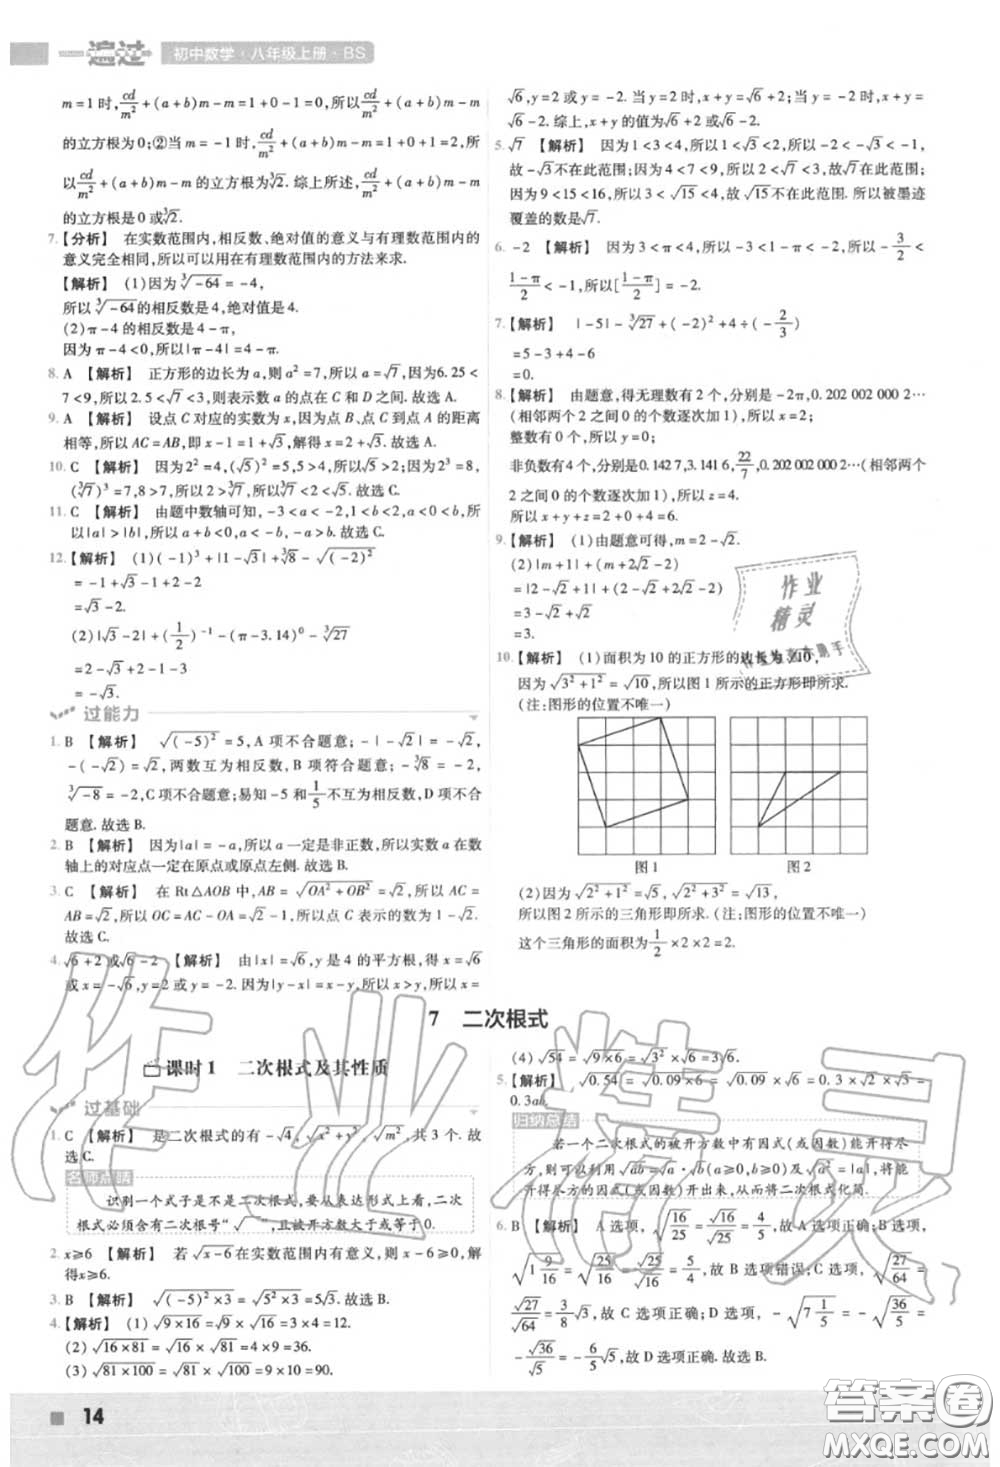 一遍过 初中数学·八年级上册·BS
m=1时,cd/m²+(a+b)m-m=1+0-1=0,所以cd/m²+(a+b)m-m
的立方根为0;②当m=-1时,cd/m²+(a+b)m-m=1+0+1=2,所
以cd/m²+(a+b)m-m的立方根为∛2.综上所述,cd/m²+(a+b)m-m
的立方根是0或∛2.
7.【分析】 在实数范围内,相反数、绝对值的意义与有理数范围内的
意义完全相同,所以可以用在有理数范围内的方法来求.
【解析】 (1)因为∛-64=-4,
所以∛-64的相反数是4,绝对值是4.
(2)π-4的相反数是4-π,
因为π-4<0,所以|π-4|=4-π.
8. A 【解析】 正方形的边长为a,则a²=7,所以a=√7,因为6.25<
7<9,所以2.5<√7<3,则表示数a的点在C和D之间.故选A.
9. A 【解析】 设点C对应的实数为x,因为点B、点C到点A的距离
相等,所以AC=AB,即x-1=1+√3,解得x=2+√3.故选A.
10. C 【解析】 因为2²=4,(√5)²=5,5>4,所以2<√5.因为2³=8,
(∛7)³=7,8>7,所以2>∛7,所以∛7<2<√5.故选C.
11. C 【解析】 由题中数轴可知,-3<a<-2,1<b<2,a<0<b,所
以|a|>|b|,因为a<0,b>0,所以a<-b,-a>b.故选C.
12.【解析】 (1)(-1)³+|1-√3|+∛8-√(-2)²
=-1+√3-1+2-2
=√3-2.
(2)|√3-2|+(1/2)⁻¹-(π-3.14)⁰-∛27
=2-√3+2-1-3
=-√3.
过能力
1. B 【解析】 √(-5)²=5,A项不合题意;-|-√2|=-√2,
-(-√2)=√2,两数互为相反数,B项符合题意;-∛8=-2,
∛-8=-2,C项不合题意;易知-5和1/5不互为相反数,D项不合
题意.故选B.
2. B 【解析】 因为|a|=-a,所以a一定是非正数,所以实数a在数
轴上的对应点一定在原点或原点左侧.故选B.
3. C 【解析】 在Rt△AOB中,AB=√OA²+OB²=√2,所以AC=
AB=√2,所以OC=AC-OA=√2-1,所以点C表示的数为√2-1.
故选C.
4. √6+2或√6-2 【解析】 由|x|=√6,y是4的平方根,得x=√6
或x=-√6,y=2或y=-2.因为|y-x|=x-y,所以x≥y,所以x=
√6,y=2或y=-2.当y=2时,x+y=√6+2;当y=-2时,x+y=
√6-2.综上,x+y的值为√6+2或√6-2.
5. √7 【解析】 因为1<3<4,所以1<√3<2,所以-2<-√3<-1,
故-√3不在此范围;因为4<7<9,所以2<√7<3,故√7在此范围;因
为9<15<16,所以3<√15<4,故√15不在此范围.所以被墨迹
覆盖的数是√7.
6. -2 【解析】 因为3<π<4,所以-3<1-π<-2,所以-3/2<
(1-π)/2<-1,所以[(1-π)/2]=-2.
7.【解析】 |-5|-∛27+(-2)²+4÷(-2/3)
=5-3+4-6
=0.
8.【解析】 由题意,得无理数有2个,分别是-2π,0.202 002 000 2…
(相邻两个2之间0的个数逐次加1),所以x=2;
整数有0个,所以y=0;
非负数有4个,分别是0.142 7,3.141 6,22/7,0.202 002 000 2…(相邻两个
2之间0的个数逐次加1),所以z=4.
所以x+y+z=2+0+4=6.
9.【解析】 (1)由题意可得,m=2-√2.
(2)|m+1|+(m+2√2-2)
=|2-√2+1|+(2-√2+2√2-2)
=3-√2+√2
=3.
10.【解析】 (1)面积为10的正方形的边长为√10,
因为√3²+1²=√10,所以图1所示的正方形即所求.
(注:图形的位置不唯一)
图1 图2
(2)因为√2²+1²=√5,√2²+3²=√13,
所以图2所示的三角形即所求.(注:图形的位置不唯一)
这个三角形的面积为1/2×2×2=2.
7 二次根式
课时1 二次根式及其性质
过基础
1. C 【解析】 是二次根式的有-√4,√x²+y²,√m²,共3个.故
选C.
名师点睛
识别一个式子是不是二次根式,要从表达形式上看,二次
根式必须含有二次根号“√ ”,且被开方数大于或等于0.
2. x≥6 【解析】 若√x-6在实数范围内有意义,则x-6≥0,解
得x≥6.
3. B 【解析】 √(-5)²×3=√5²×3=5√3.故选B.
4.【解析】 (1)√9×16=√9×√16=3×4=12.
(2)√16×81=√16×√81=4×9=36.
(3)√81×100=√81×√100=9×10=90.
(4)√54=√9×6=√3²×√6=3√6.
5.【解析】
0.3ab.
归纳总结
若一个二次根式的被开方数中有因式(或因数)能开得尽
方,则可以利用√ab=√a·√b(a≥0,b≥0)及√a²=|a|,将能
开得尽方的因式(或因数)开出来,从而将二次根式化简.
6. B 【解析】 A选项,√16/25=√16/√25=4/5,故A选项正确;B选项,
√1 9/16=√25/16=√25/√16=5/4,故B选项错误;C选项,√27/64=
√27/√64=3/8√3,故C选项正确;D选项,-√7 1/5=-√36/5=
-√36/√5=-6/5√5,故D选项正确.故选B.
14
作业精灵
作业精灵
答案圈
MXQE.COM